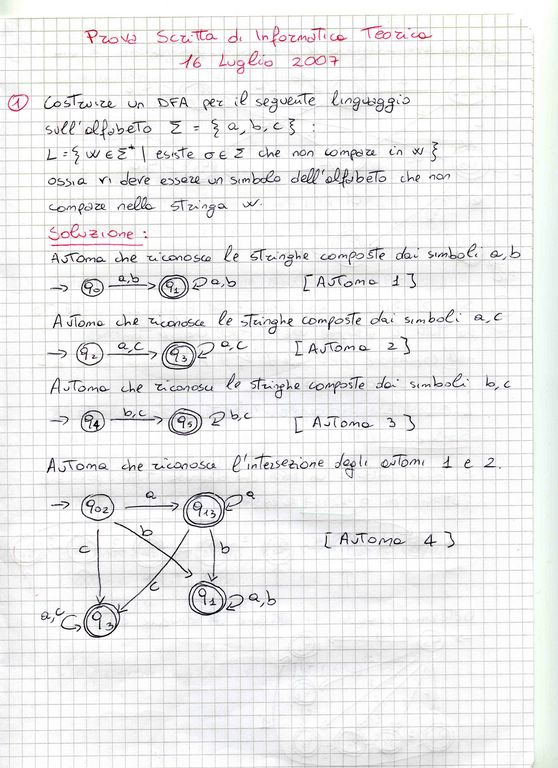 Prova Scritta di Informatica Teorica
16 Luglio 2007
① Costruire un DFA per il seguente linguaggio
sull'alfabeto Σ = { a, b, c } :
L = { w ∈ Σ* | esiste σ ∈ Σ che non compare in w }
ossia vi deve essere un simbolo dell'alfabeto che non
compare nella stringa w.
Soluzione :
Automa che riconosce le stringhe composte dai simboli a, b
→ q0 a,b q1 a,b [ Automa 1 ]
Automa che riconosce le stringhe composte dai simboli a, c
→ q2 a,c q3 a,c [ Automa 2 ]
Automa che riconosce le stringhe composte dai simboli b, c
→ q4 b,c q5 b,c [ Automa 3 ]
Automa che riconosce l'intersezione degli automi 1 e 2.
→ q02 a q13 a
c b c b [ Automa 4 ]
a,c q3 q1 a,b